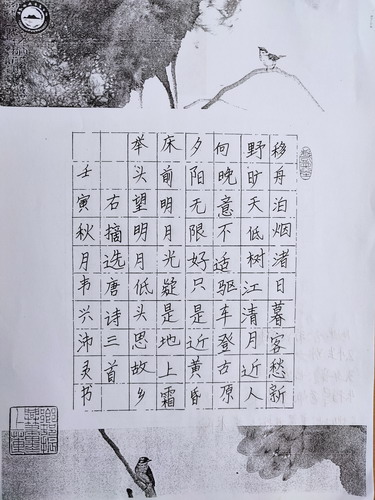 移舟泊烟渚日暮客愁新
野旷天低树江清月近人
向晚意不适驱车登古原
夕阳无限好只是近黄昏
床前明月光疑是地上霜
举头望明月低头思故乡
右摘选唐诗三首
壬寅秋月韦兴沛灵书